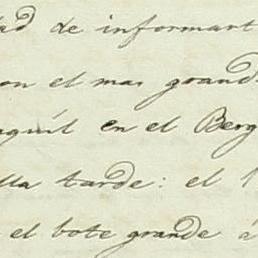 dad de informart
on el mas grand
aquíl en el Berg
lla tarde: el 1
el bote grande á